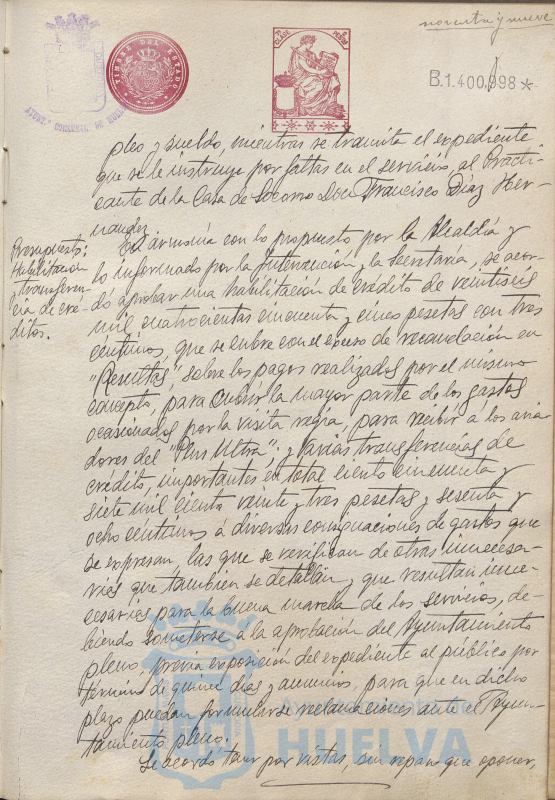 noventa y nueve
AYUNT. CONSTNAL. DE HUELVA
TIMBRE DEL ESTADO
CLASE
B.1.400.998*
pleo y sueldo, mientras se tramita el expediente
que se le instruye por faltas en el servicio, al Practi-
cante de la Casa de Socorro Don Francisco Díaz Her-
nandez.
Presupuesto:
Habilitación
y Transferen-
cia de cré-
ditos.
En armonía con lo propuesto por la Alcaldía y
lo informado por la Intervención y la Secretaría, se acor-
dó aprobar una habilitación de crédito de veintiseis
mil cuatrocientas cincuenta y cinco pesetas con tres
centimos, que se cubre con el exceso de recaudación en
"Resultas", sobre los pagos realizados por el mismo
concepto, para cubrir la mayor parte de los gastos
ocasionados por la visita regia, para recibir á los avia-
dores del "Plus Ultra"; y varias transferencias de
crédito, importantes en total ciento cincuenta y
siete mil ciento veinte y tres pesetas y sesenta y
ocho centimos á diversas consignaciones de gastos que
se expresan, las que se verifican de otras innecesa-
rias que tambien se detallan, y que resultan inne-
cesarias para la buena marcha de los servicios, de-
biendo someterse á la aprobación del Ayuntamiento
pleno, previa exposición del expediente al público por
término de quince días y anuncios, para que en dicho
plazo puedan formularse reclamaciones ante el Ayun-
tamiento pleno.
HUELVA
Se acordó tener por vistas, sin reparo que oponer,